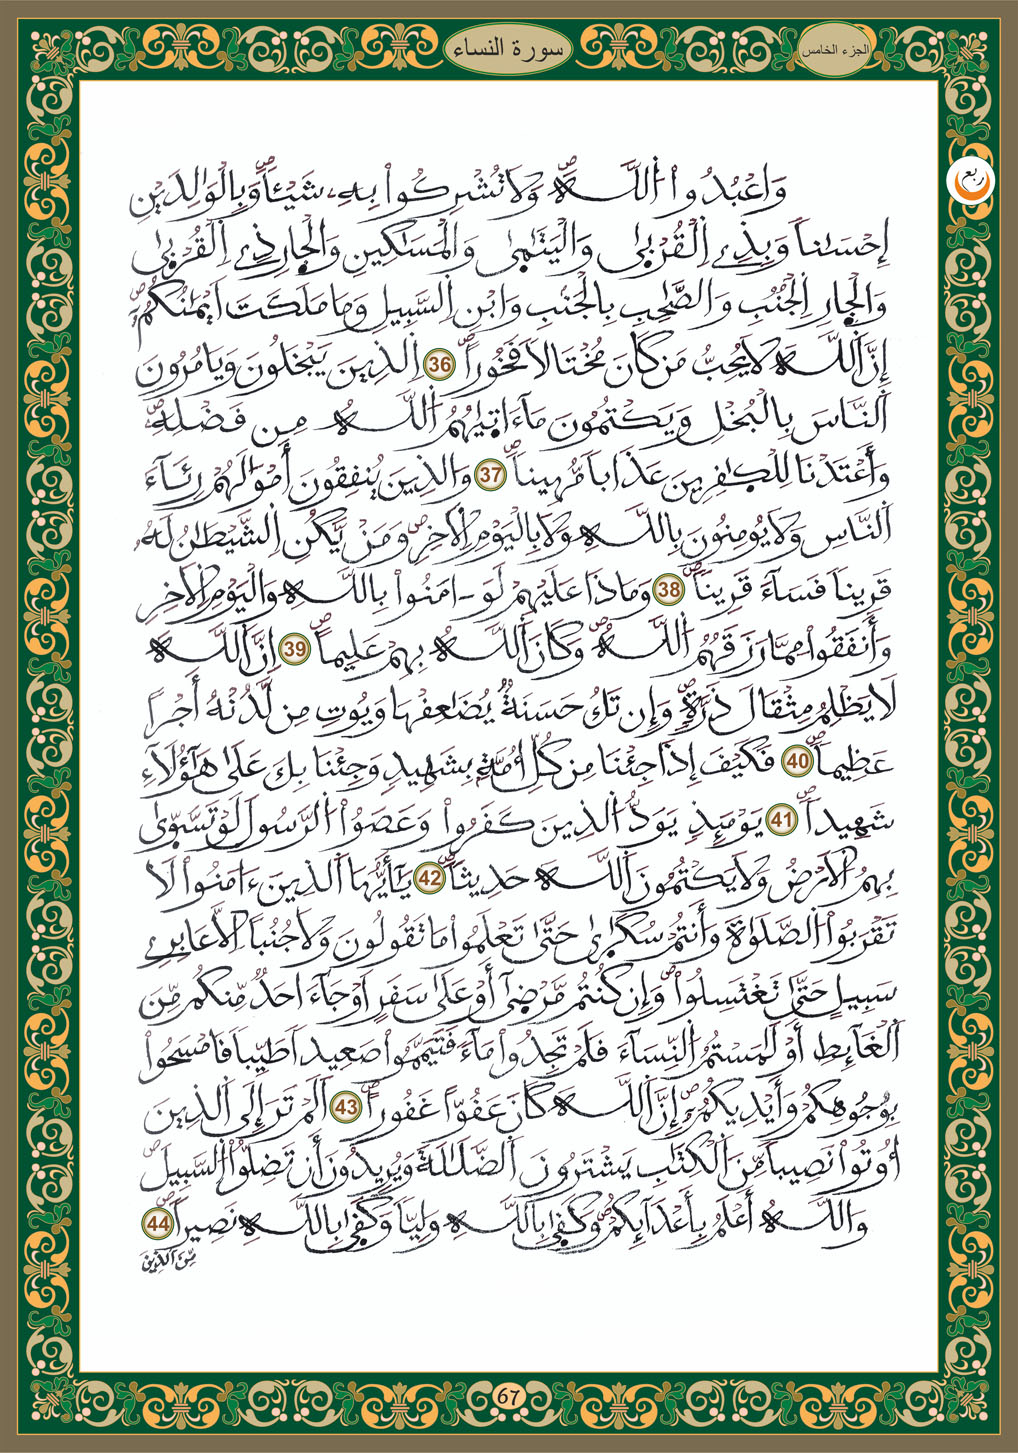 الجزء الخامس
سورة النساء
ربع
وَاعْبُدُواْ اُللَّهَ وَلَا تُشْرِكُواْ بِهِۦ شَيْـٔاً وَبِالْوَٰلِدَيْنِ
إِحْسَٰناً وَبِذِے اِلْقُرْبَىٰ وَالْيَتَٰمَىٰ وَالْمَسَٰكِينِ وَالْجارِ ذِے اِلْقُرْبَىٰ
وَالْجارِ اِلْجُنُبِ وَالصَّٰحِبِ بِالْجَنۢبِ وَابْنِ اِلسَّبِيلِ وَمَا مَلَكَتَ اَيْمَٰنُكُمُ
إِنَّ اَللَّهَ لَا يُحِبُّ مَن كَانَ مُخْتَالًا فَخُوراً 36 اِلذِينَ يَبْخَلُونَ وَيَامُرُونَ
اَلنَّاسَ بِالْبُخْلِ وَيَكْتُمُونَ مَآ ءَاتَيٰهُمُ اُللَّهُ مِن فَضْلِهِ
وَأَعْتَدْنَا لِلْكٰفِرِينَ عَذَاباً مُّهِيناً 37 وَالذِينَ يُنفِقُونَ أَمْوَٰلَهُمْ رِئَآءَ
اَلنَّاسِ وَلَا يُومِنُونَ بِاللَّهِ وَلَا بِالْيَوْمِ اِلَاخِرِ وَمَنْ يَّكُنِ اِلشَّيْطَٰنُ لَهُۥ
قَرِيناً فَسَآءَ قَرِيناً 38 وَمَاذَا عَلَيْهِمْ لَوَ ـ امَنُواْ بِاللَّهِ وَالْيَوْمِ اِلَاخِرِ
وَأَنفَقُواْ مِمَّا رَزَقَهُمُ اُللَّهُ وَكَانَ اَللَّهُ بِهِمْ عَلِيماً 39 اِنَّ اَللَّهَ
لَا يَظْلِمُ مِثْقَالَ ذَرَّةٍ وَإِن تَكُ حَسَنَةٌ يُضَٰعِفْهَا وَيُوتِ مِن لَّدُنْهُ أَجْراً
عَظِيماً 40 فَكَيْفَ إِذَا جِئْنَا مِن كُلِّ أُمَّةٍۭ بِشَهِيدٍ وَجِئْنَا بِكَ عَلَىٰ هَٰٓؤُلَآءِ
شَهِيداً 41 يَوْمَئِذٍ يَوَدُّ اُلذِينَ كَفَرُواْ وَعَصَوُاْ اُلرَّسُولَ لَوْ تَسَّوَّىٰ
بِهِمُ اُلَارْضُ وَلَا يَكْتُمُونَ اَللَّهَ حَدِيثاً 42 يَٰٓأَيُّهَا اَلذِينَ ءَامَنُواْ لَا
تَقْرَبُواْ اُلصَّلَوٰةَ وَأَنتُمْ سُكَٰرَىٰ حَتَّىٰ تَعْلَمُواْ مَا تَقُولُونَ وَلَا جُنُباً اِلَّا عَابِرِے
سَبِيلٍ حَتَّىٰ تَغْتَسِلُواْ وَإِن كُنتُم مَّرْضَىٰٓ أَوْ عَلَىٰ سَفَرٍ اَوْ جَآءَ احَدٌ مِّنكُم مِّنَ
اَلْغَآئِطِ أَوْ لَٰمَسْتُمُ اُلنِّسَآءَ فَلَمْ تَجِدُواْ مَآءً فَتَيَمَّمُواْ صَعِيداً طَيِّباً فَامْسَحُواْ
بِوُجُوهِكُمْ وَأَيْدِيكُمُ إِنَّ اَللَّهَ كَانَ عَفُوّاً غَفُوراً 43 اَلَمْ تَرَ إِلَى اَلذِينَ
أُوتُواْ نَصِيباً مِّنَ اَلْكِتَٰبِ يَشْتَرُونَ اَلضَّلَٰلَةَ وَيُرِيدُونَ أَن تَضِلُّواْ اُلسَّبِيلَ
وَاللَّهُ أَعْلَمُ بِأَعْدَآئِكُمْ وَكَفَىٰ بِاللَّهِ وَلِيّاً وَكَفَىٰ بِاللَّهِ نَصِيراً 44
مِّنَ اَلذِينَ
67